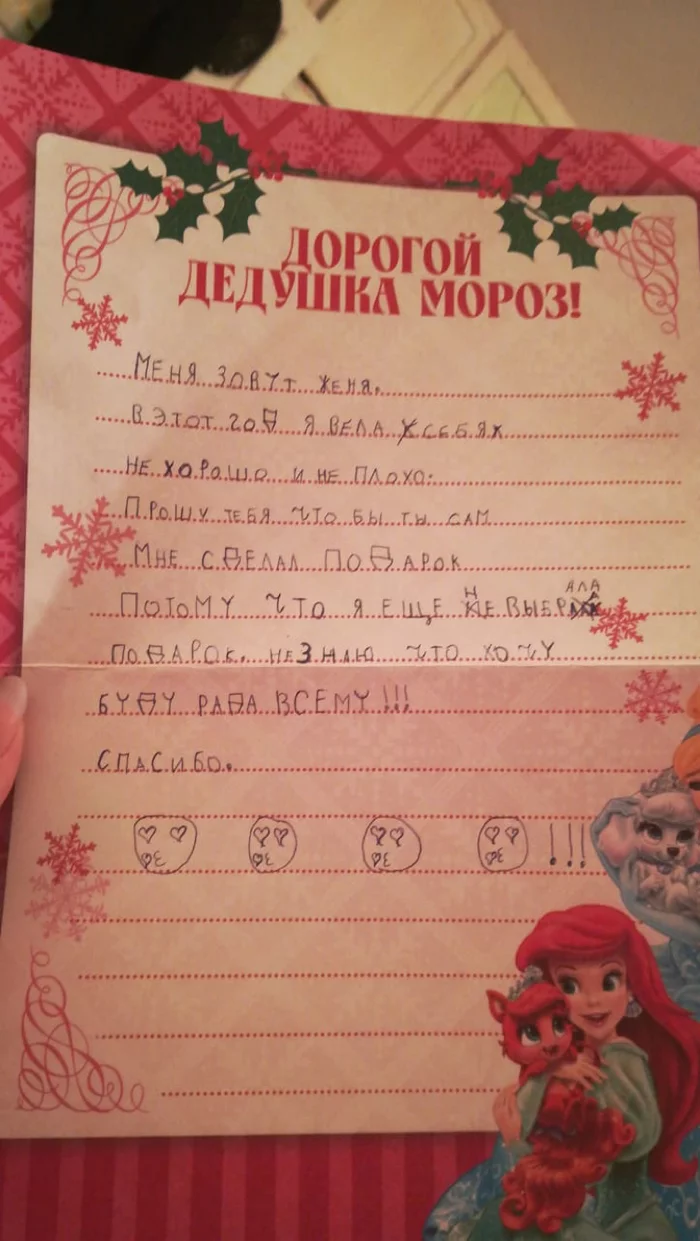 ДОРОГОЙ
ДЕДУШКА МОРОЗ!
МЕНЯ ЗОВУТ ЖЕНЯ.
В ЭТОТ ГОД Я ВЕЛА СЕБЯ
НЕ ХОРОШО И НЕ ПЛОХО.
ПРОШУ ТЕБЯ ЧТО БЫ ТЫ САМ
МНЕ СДЕЛАЛ ПОДАРОК
ПОТОМУ ЧТО Я ЕЩЕ НЕ ВЫБРАЛА
ПОДАРОК. НЕЗНАЮ ЧТО ХОЧУ
БУДУ РАДА ВСЕМУ!!!
СПАСИБО.
!!!